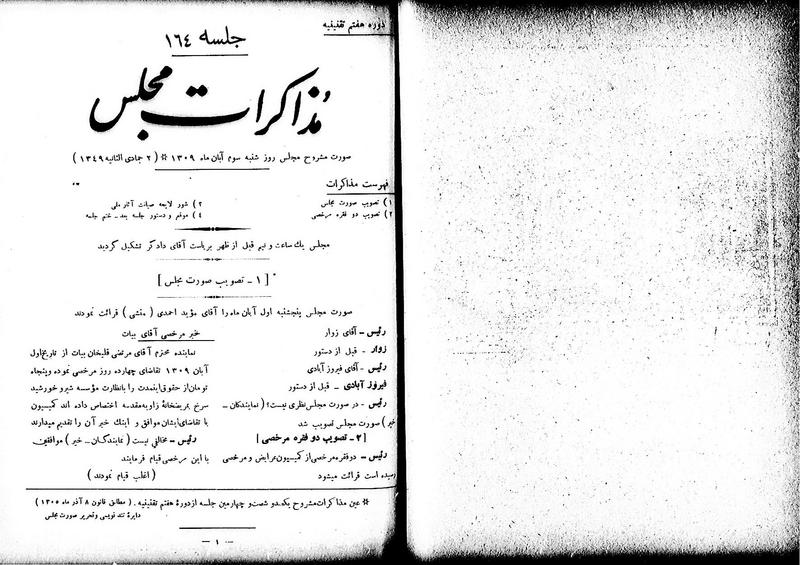 دوره هفتم تقنینیه
جلسه ١٦٤
مذاکرات مجلس
صورت مشروح مجلس روز شنبه سوم آبان ماه ١٣٠٩ * (٢ جمادی الثانیه ١٣٤٩)
فهرست مذاکرات
١) تصویب صورت مجلس
٢) تصویب دو فقره مرخصی
٣) شور لایحه صیانت آثار ملی
٤) موقع و دستور جلسه بعد ـ ختم جلسه
مجلس یك ساعت و نیم قبل از ظهر بریاست آقای دادگر تشکیل گردید
[ ١ ـ تصویب صورت مجلس ]
صورت مجلس پنجشنبه اول آبان ماه را آقای مؤید احمدی (منشی) قرائت نمودند
رئیس ـ آقای زوار
زوار ـ قبل از دستور
رئیس ـ آقای فیروز آبادی
فیروز آبادی ـ قبل از دستور
رئیس ـ در صورت مجلس نظری نیست؟ (نمایندگان ـ
خیر) صورت مجلس تصویب شد
[ ٢ ـ تصویب دو فقره مرخصی ]
رئیس ـ دو فقره مرخصی از کمیسیون عرایض و مرخصی
رسیده است قرائت میشود
خبر مرخصی آقای بیات
نماینده محترم آقای مرتضی قلیخان بیات از تاریخ اول
آبان ١٣٠٩ تقاضای چهارده روز مرخصی نموده و پنجاه
تومان از حقوق اینمدت را بانظارت مؤسسه شیر و خورشید
سرخ بمریضخانهٔ زاویه مقدسه اختصاص داده اند کمیسیون
با تقاضای ایشان موافق و اینك خبر آن را تقدیم میدارند
رئیس ـ مخالفی نیست (نمایندگان ـ خیر) موافقین
با این مرخصی قیام فرمایند
(اغلب قیام نمودند)
* عین مذاکرات مشروح یکصد و شصت و چهارمین جلسه از دورهٔ هفتم تقنینیه . (مطابق قانون ٨ آذر ماه ١٣٠٥)
دایرهٔ تند نویسی و تحریر صورت مجلس
ـ ١ ـ